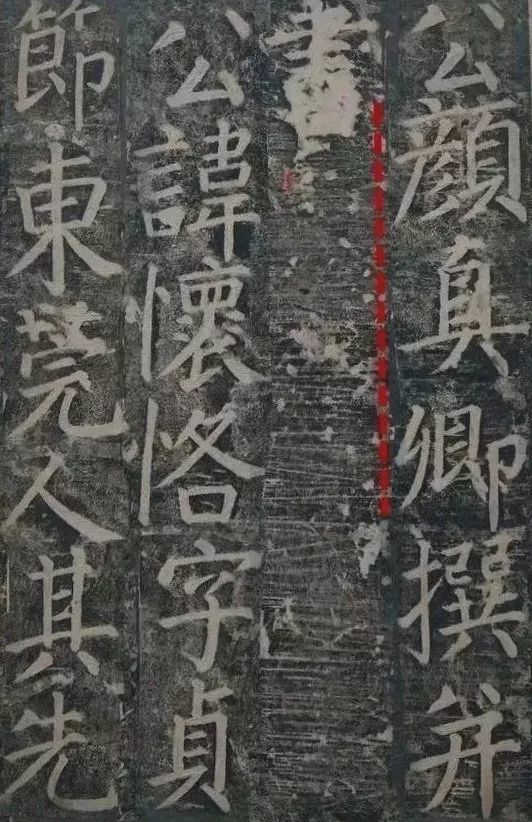 公顏真卿撰并
書
公諱懷恪字貞
節東莞人其先